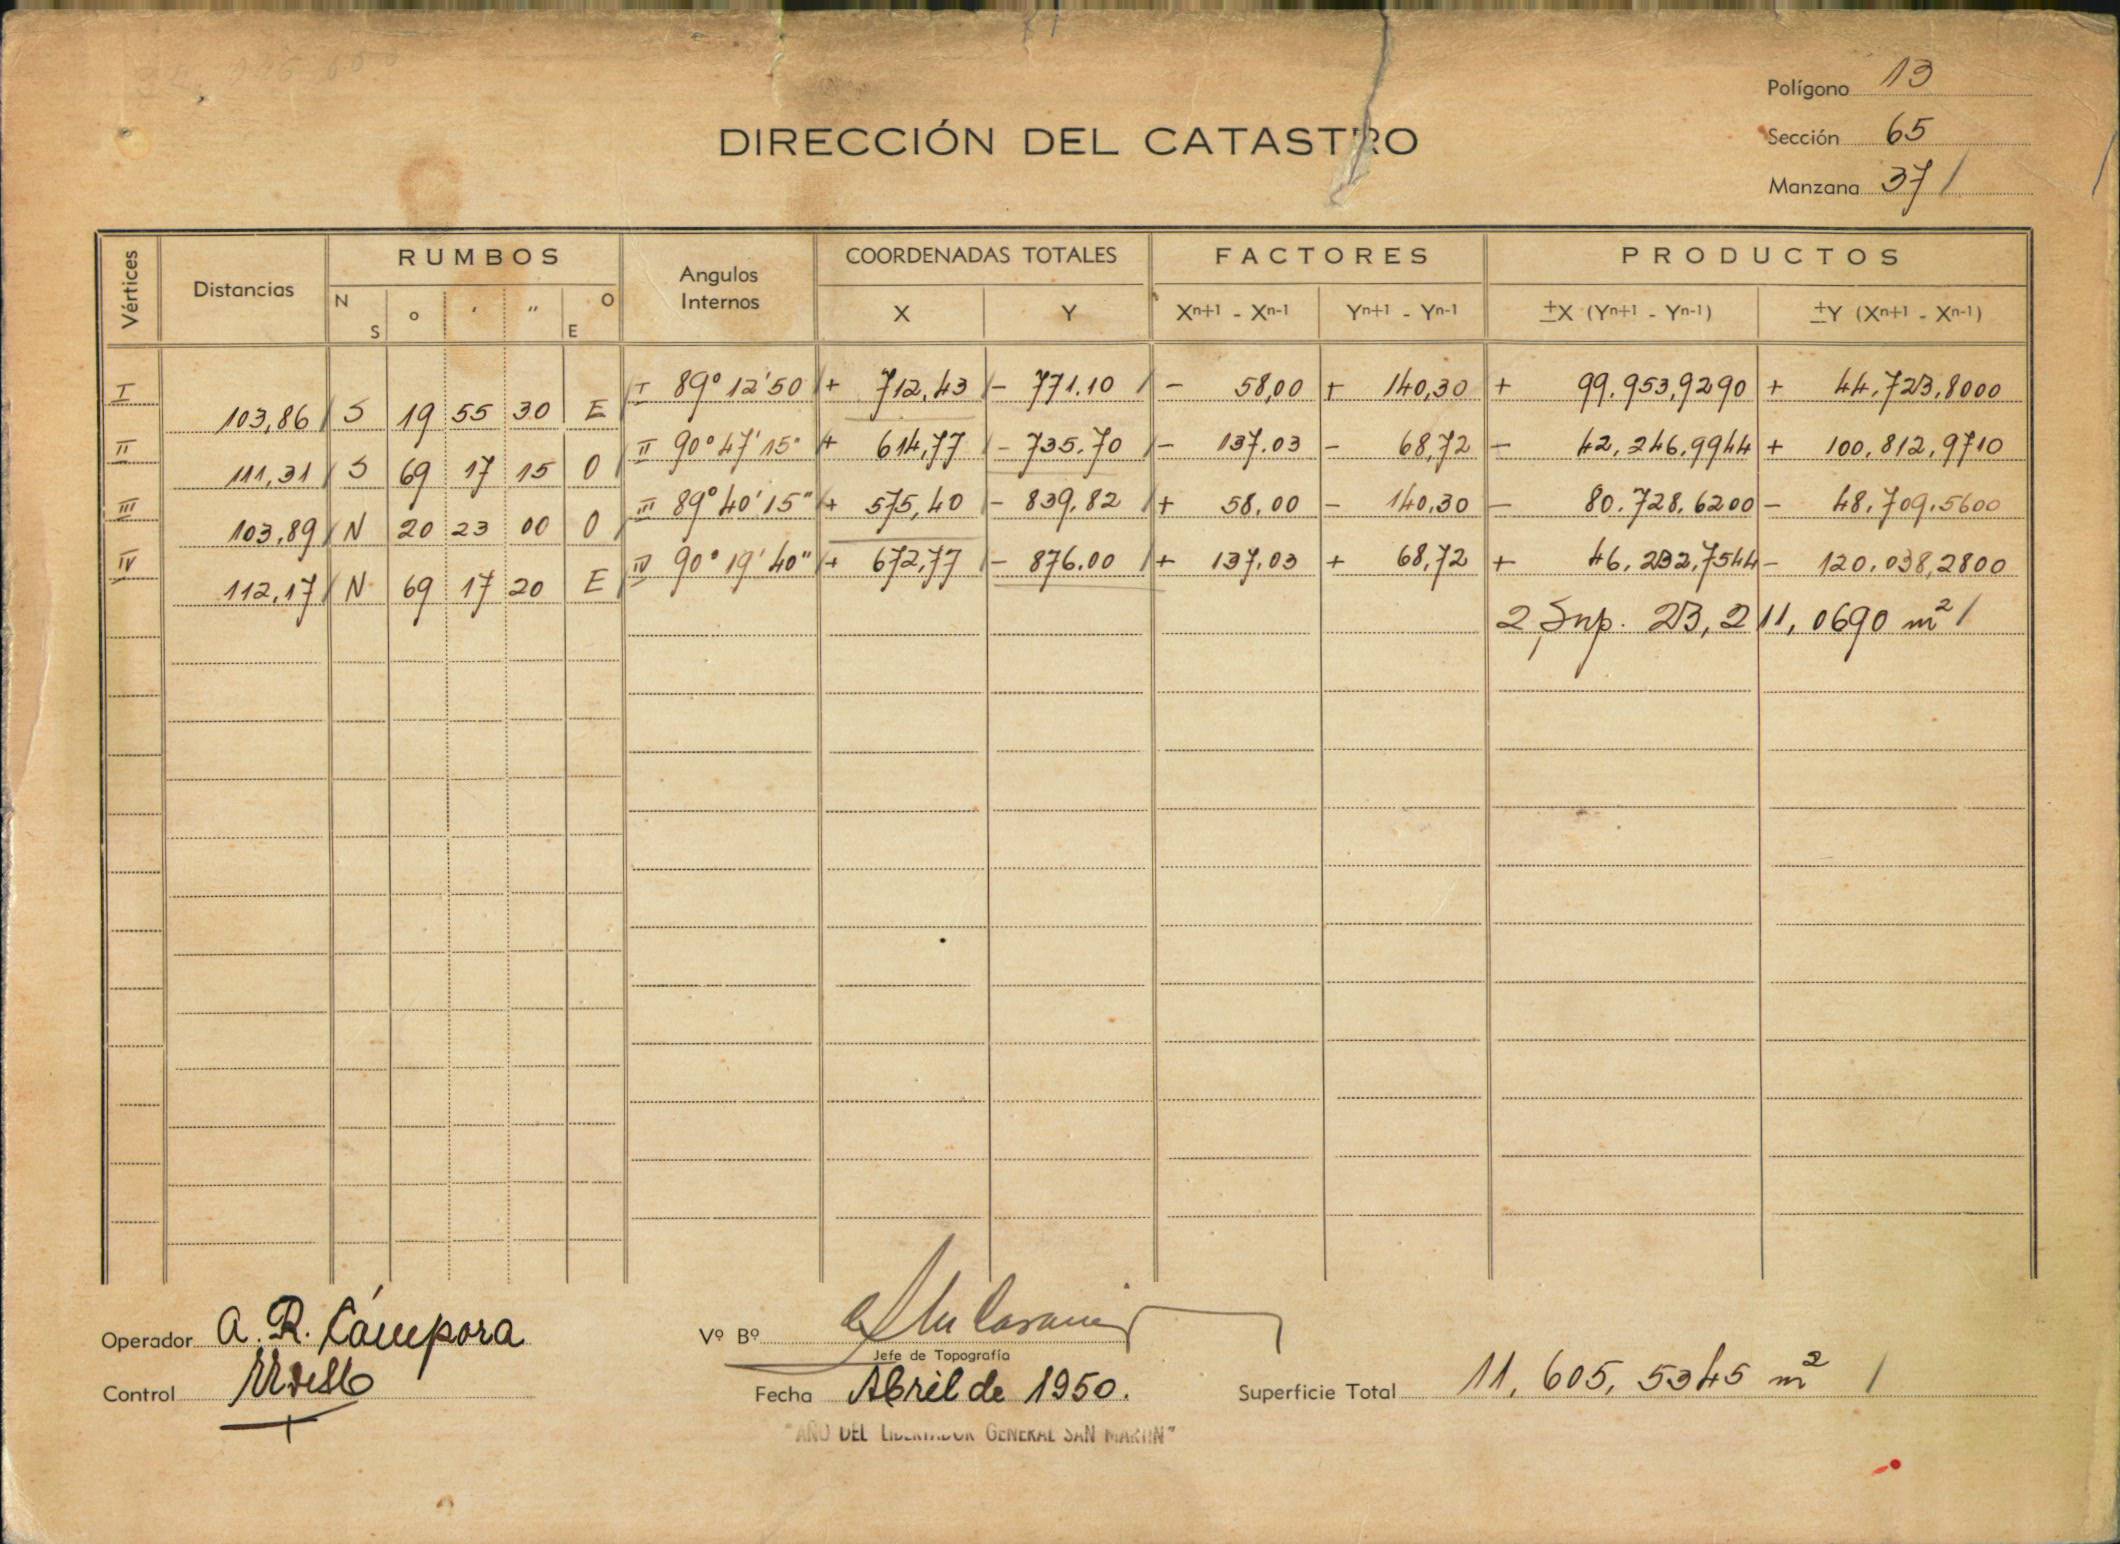 Polígono 13
DIRECCIÓN DEL CATASTRO
Sección 65
Manzana 37 /
Vértices Distancias RUMBOS Angulos Internos COORDENADAS TOTALES FACTORES PRODUCTOS
N S o ' " O E X Y Xn+1 - Xn-1 Yn+1 - Yn-1 ±X (Yn+1 - Yn-1) ±Y (Xn+1 - Xn-1)
I 103,86 S 19 55 30 E I 89° 12' 50 + 712,43 - 771.10 - 58,00 + 140,30 + 99.953,9290 + 44.723,8000
II 111,31 S 69 17 15 O II 90° 47' 15" + 614,77 - 735.70 - 137.03 - 68,72 - 42,246,9944 + 100,812,9710
III 103,89 N 20 23 00 O III 89° 40' 15" + 575,40 - 839,82 + 58,00 - 140,30 - 80.728,6200 - 48,709,5600
IV 112,17 N 69 17 20 E IV 90° 19' 40" + 672,77 - 876.00 + 137,03 + 68,72 + 46,232,7544 - 120,038,2800
2 Sup. 23,211,0690 m² /
Operador A. R. Cámpora
Vº Bº
Jefe de Topografía
Control
Fecha Abril de 1950.
Superficie Total 11,605,5345 m² /
"AÑO DEL LIBERTADOR GENERAL SAN MARTIN"